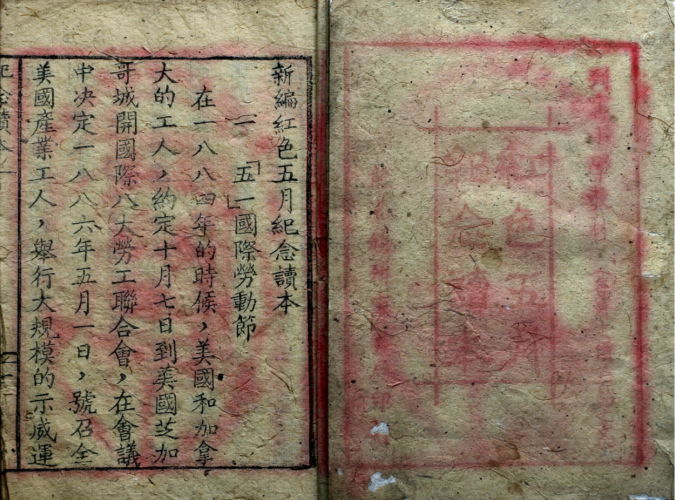 紅色五月
紀念讀本
新編紅色五月紀念讀本
一 「五一」國際勞動節
在一八八四年的時候，美國和加拿
大的工人，約定十月七日到美國芝加
哥城開國際八大勞工聯合會，在會議
中决定一八八六年五月一日，號召全
美國產業工人，舉行大規模的示威運
念讀本